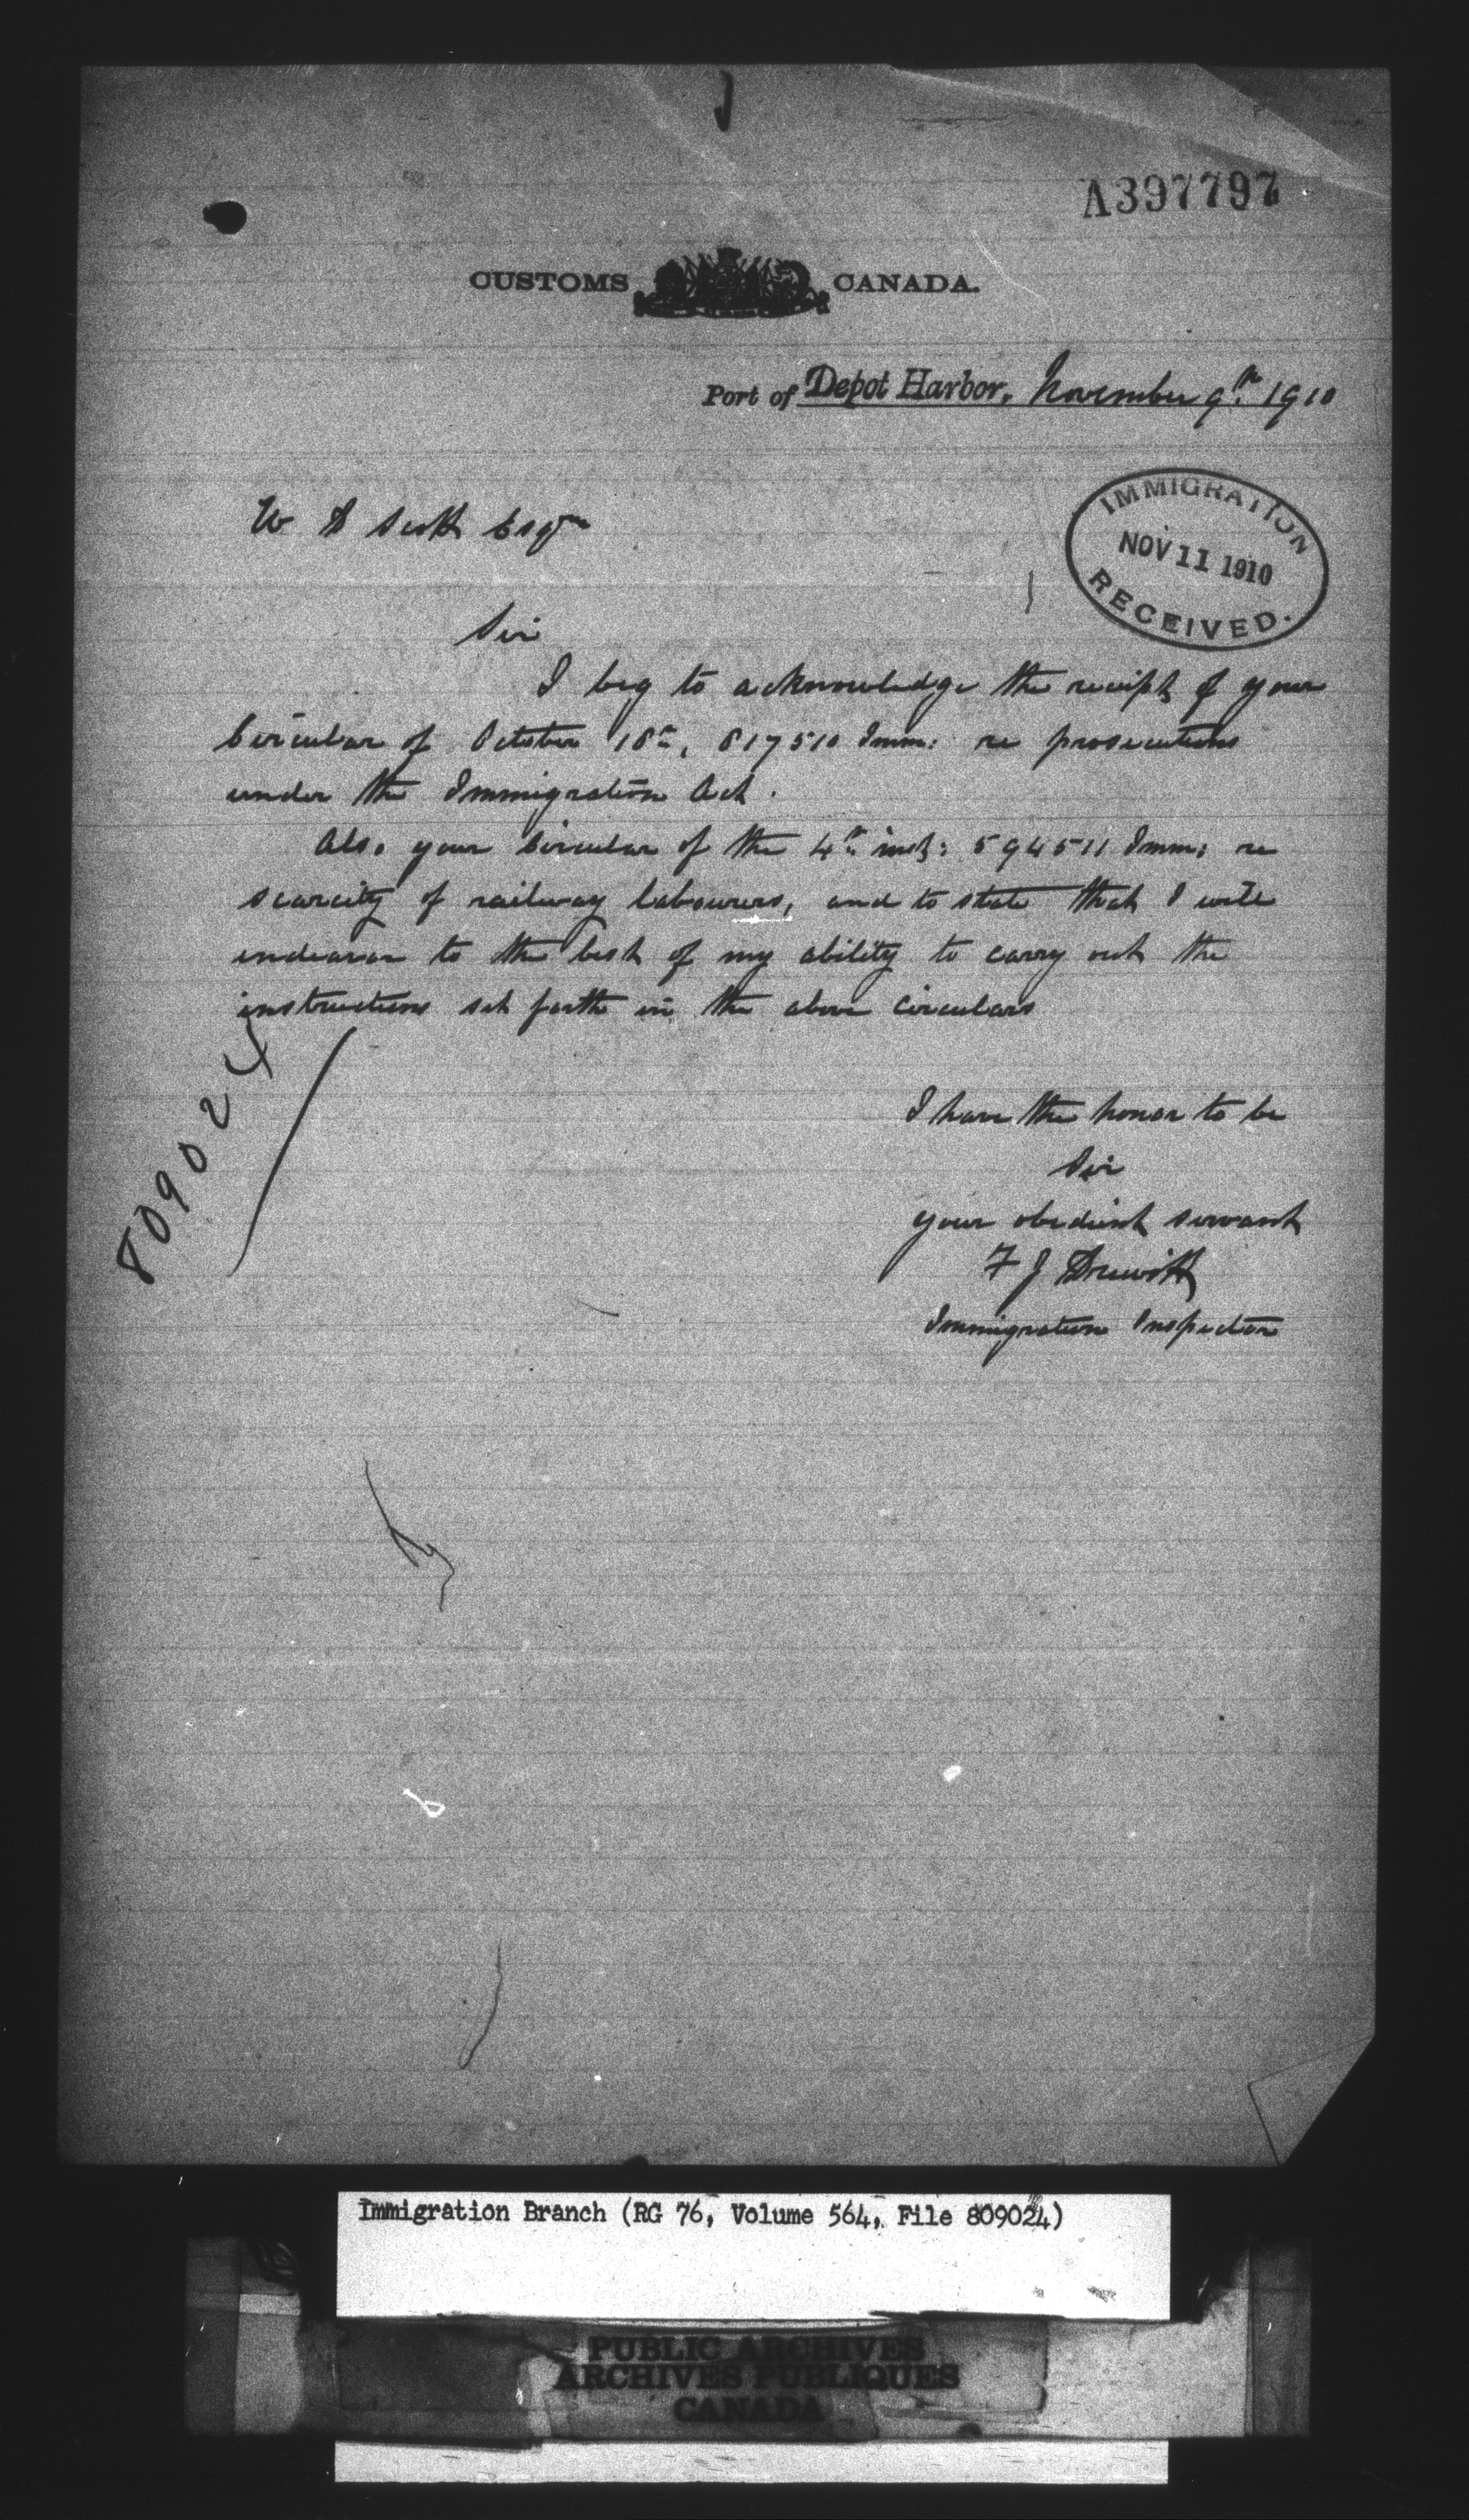 A397797
CUSTOMS CANADA.
Port of Depot Harbor, November 9th 1910
IMMIGRATION
NOV 11 1910
RECEIVED.
W D Scott Esqre
Sir
I beg to acknowledge the receipt of your
Circular of October 18th, 817510 Imm: re prosecutions
under the Immigration Act.
Also your Circular of the 4th inst: 594511 Imm: re
scarcity of railway labourers, and to state that I will
endeavor to the best of my ability to carry out the
instructions set forth in the above circulars
809024
I have the honor to be
Sir
your obedient servant
F J Drewitt
Immigration Inspector
Immigration Branch (RG 76, Volume 564, File 809024)
PUBLIC ARCHIVES
ARCHIVES PUBLIQUES
CANADA